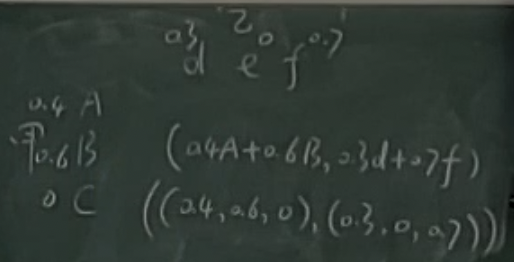 0.3 0 0.7
d e f
0.4 A
0.6 B (0.4A+0.6B, 0.3d+0.7f)
0 C ((0.4, 0.6, 0), (0.3, 0, 0.7)))